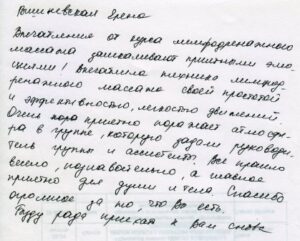 Вишневская Ирена
Впечатления от курса лимфодренажного
массажа зашкаливают приятными эмо
циями! Впечатлила техника лимфод
ренажного массажа своей простотой
и эффективностью, легкостью движений.
Очень приятно поражает атмосфе
ра в группе, которую задали руководи
тель группы и ассистенты. Все прошло
весело, познавательно, а главное
приятно для души и тела. Спасибо
огромное за то, что Вы есть.
Буду рада приехать к Вам снова